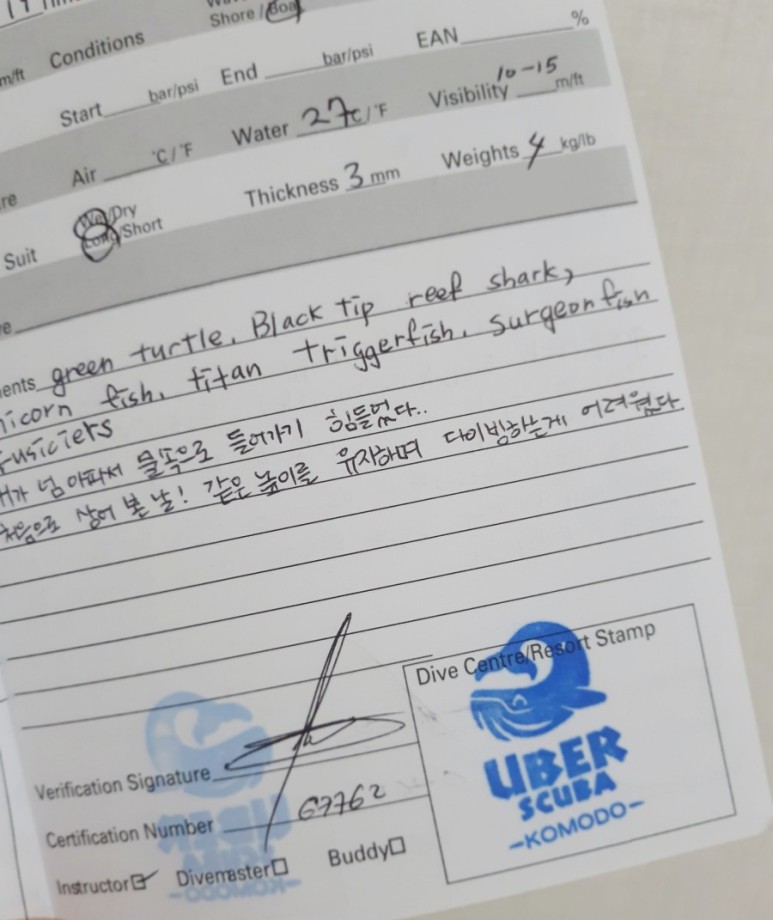 Shore / Boat
m/ft Conditions
Start bar/psi End bar/psi EAN %
Air °C/°F Water 27 °C/°F Visibility 10-15 m/ft
Suit Wet/Dry Long/Short Thickness 3 mm Weights 4 kg/lb
green turtle, Black tip reef shark,
fish, titan triggerfish, surgeonfish
fusiciers
넘 아파서 물속으로 들어가기 힘들었다..
처음으로 상어 본 날! 같은 높이를 유지하며 다이빙하는게 어려웠다
Dive Centre/Resort Stamp
UBER
SCUBA
-KOMODO-
Verification Signature
Certification Number 67762
Instructor Divemaster Buddy